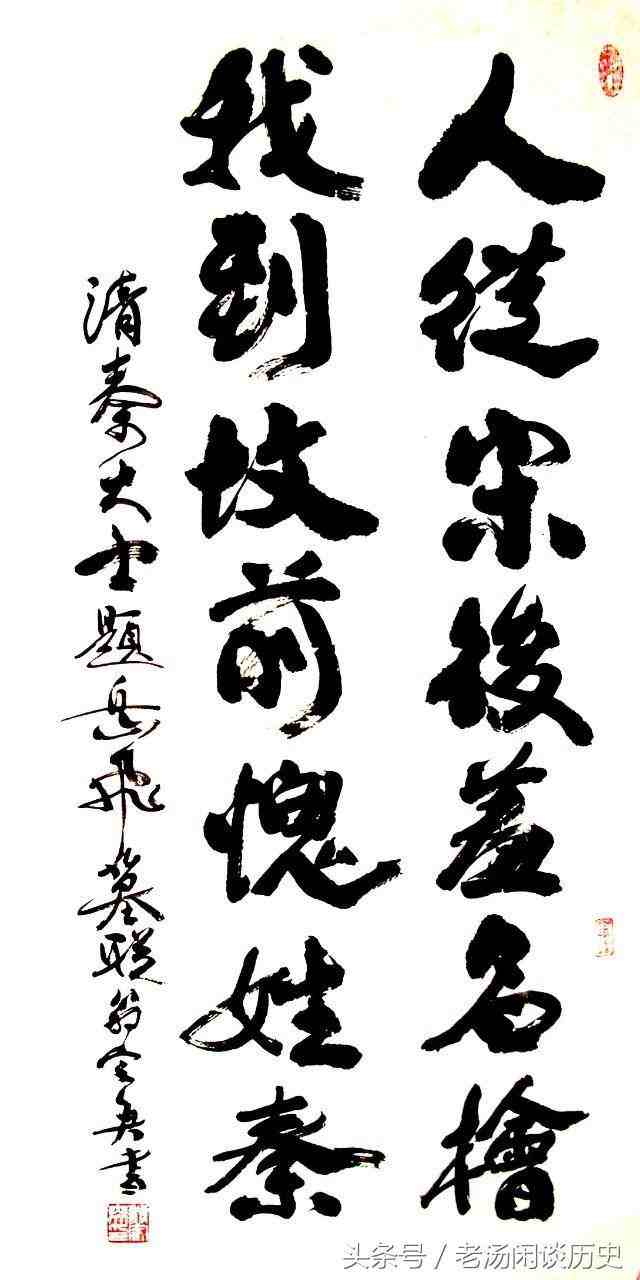 人從宋後羞名檜
我到坟前愧姓秦
清秦大士題岳飛墓联翁書
头条号 / 老汤闲谈历史